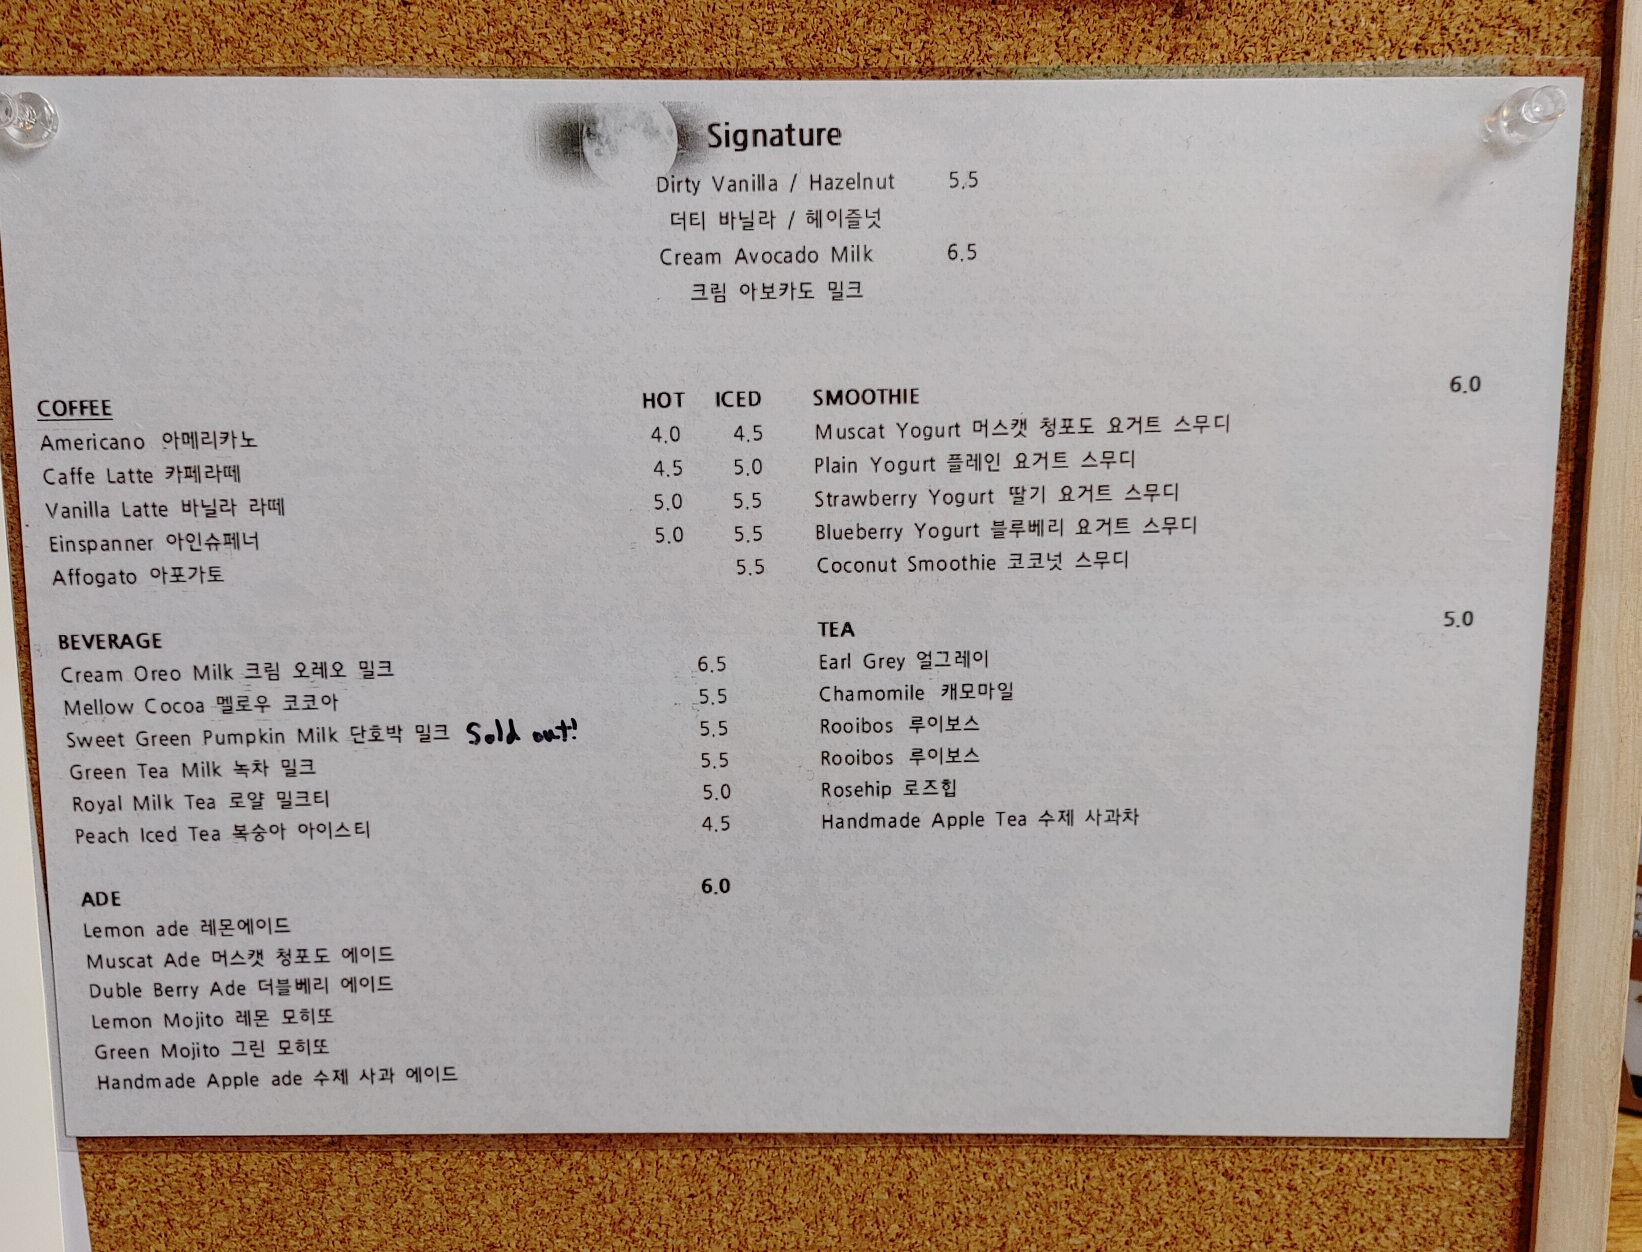 Signature
Dirty Vanilla / Hazelnut 5.5
더티 바닐라 / 헤이즐넛
Cream Avocado Milk 6.5
크림 아보카도 밀크
COFFEE HOT ICED
Americano 아메리카노 4.0 4.5
Caffe Latte 카페라떼 4.5 5.0
Vanilla Latte 바닐라 라떼 5.0 5.5
Einspanner 아인슈페너 5.0 5.5
Affogato 아포가토 5.5
BEVERAGE
Cream Oreo Milk 크림 오레오 밀크 6.5
Mellow Cocoa 멜로우 코코아 5.5
Sweet Green Pumpkin Milk 단호박 밀크 Sold out! 5.5
Green Tea Milk 녹차 밀크 5.5
Royal Milk Tea 로얄 밀크티 5.0
Peach Iced Tea 복숭아 아이스티 4.5
ADE 6.0
Lemon ade 레몬에이드
Muscat Ade 머스캣 청포도 에이드
Duble Berry Ade 더블베리 에이드
Lemon Mojito 레몬 모히또
Green Mojito 그린 모히또
Handmade Apple ade 수제 사과 에이드
SMOOTHIE 6.0
Muscat Yogurt 머스캣 청포도 요거트 스무디
Plain Yogurt 플레인 요거트 스무디
Strawberry Yogurt 딸기 요거트 스무디
Blueberry Yogurt 블루베리 요거트 스무디
Coconut Smoothie 코코넛 스무디
TEA 5.0
Earl Grey 얼그레이
Chamomile 캐모마일
Rooibos 루이보스
Rooibos 루이보스
Rosehip 로즈힙
Handmade Apple Tea 수제 사과차